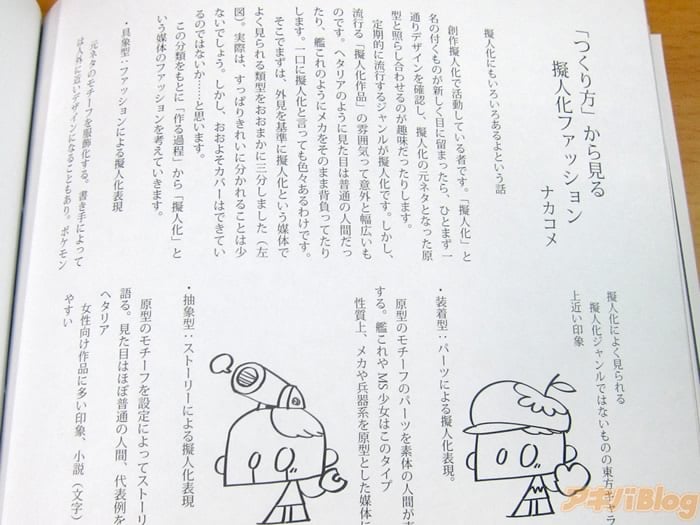 「つくり方」から見る
擬人化ファッション
ナカコメ
擬人化にもいろいろあるよという話
創作擬人化で活動している者です。「擬人化」と
名の付くものが新しく目に留まったら、ひとまず一
通りデザインを確認し、擬人化の元ネタとなった原
型と照らし合わせるのが趣味だったりします。
定期的に流行するジャンルが擬人化です。しかし、
流行する「擬人化作品」の雰囲気って意外と幅広いも
のです。ヘタリアのように見た目は普通の人間だっ
たり、艦これのようにメカをそのまま背負ってたり
します。一口に擬人化と言っても色々あるわけです。
そこでまずは、外見を基準に擬人化という媒体で
よく見られる類型をおおまかに三分しました（左
図）。実際は、すっぱりきれいに分かれることは少
ないでしょう。しかし、おおよそカバーはできてい
るのではないか……と思います。
この分類をもとに「作る過程」から「擬人化」と
いう媒体のファッションを考えていきます。
・具象型：ファッションによる擬人化表現
元ネタのモチーフを服飾化する。書き手によって
は人外に近いデザインになることもあり。ポケモン
擬人化によく見られる
擬人化ジャンルではないものの東方キャラ
上近い印象
・装着型：パーツによる擬人化表現。
原型のモチーフのパーツを素体の人間が
する。艦これや MS 少女はこのタイプ
性質上、メカや兵器系を原型とした媒体に
・抽象型：ストーリーによる擬人化表現
原型のモチーフを設定によってストーリ
語る。見た目はほぼ普通の人間、代表例を
ヘタリア
女性向け作品に多い印象、小説（文字）
やすい
アキバBlog